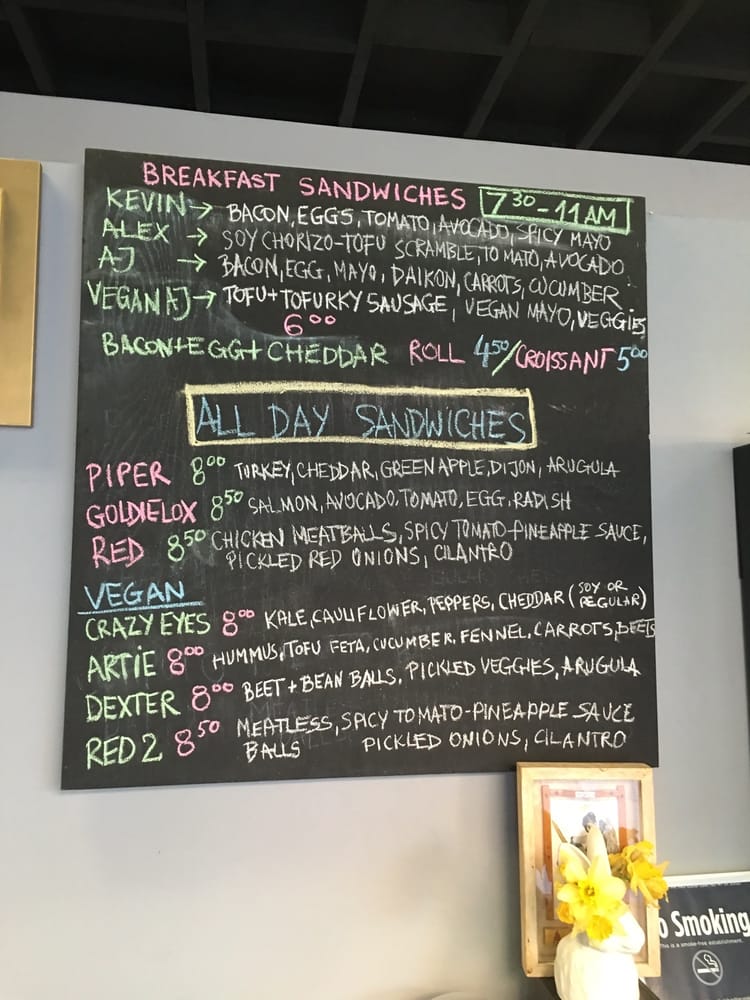 BREAKFAST SANDWICHES 7³⁰-11AM
KEVIN → BACON, EGGS, TOMATO, AVOCADO, SPICY MAYO
ALEX → SOY CHORIZO-TOFU SCRAMBLE, TOMATO, AVOCADO
AJ → BACON, EGG, MAYO, DAIKON, CARROTS, CUCUMBER
VEGAN AJ → TOFU+TOFURKY SAUSAGE, VEGAN MAYO, VEGGIES
6⁰⁰
BACON+EGG+CHEDDAR ROLL 4⁵⁰/CROISSANT 5⁰⁰
ALL DAY SANDWICHES
PIPER 8⁰⁰ TURKEY, CHEDDAR, GREEN APPLE, DIJON, ARUGULA
GOLDIELOX 8⁵⁰ SALMON, AVOCADO, TOMATO, EGG, RADISH
RED 8⁵⁰ CHICKEN MEATBALLS, SPICY TOMATO-PINEAPPLE SAUCE,
PICKLED RED ONIONS, CILANTRO
VEGAN
CRAZY EYES 8⁰⁰ KALE, CAULIFLOWER, PEPPERS, CHEDDAR (SOY OR
REGULAR)
ARTIE 8⁰⁰ HUMMUS, TOFU FETA, CUCUMBER, FENNEL, CARROTS, BEETS
DEXTER 8⁰⁰ BEET + BEAN BALLS, PICKLED VEGGIES, ARUGULA
RED 2 8⁵⁰ MEATLESS, SPICY TOMATO-PINEAPPLE SAUCE
BALLS PICKLED ONIONS, CILANTRO
o Smoking
This is a smoke-free establishment.